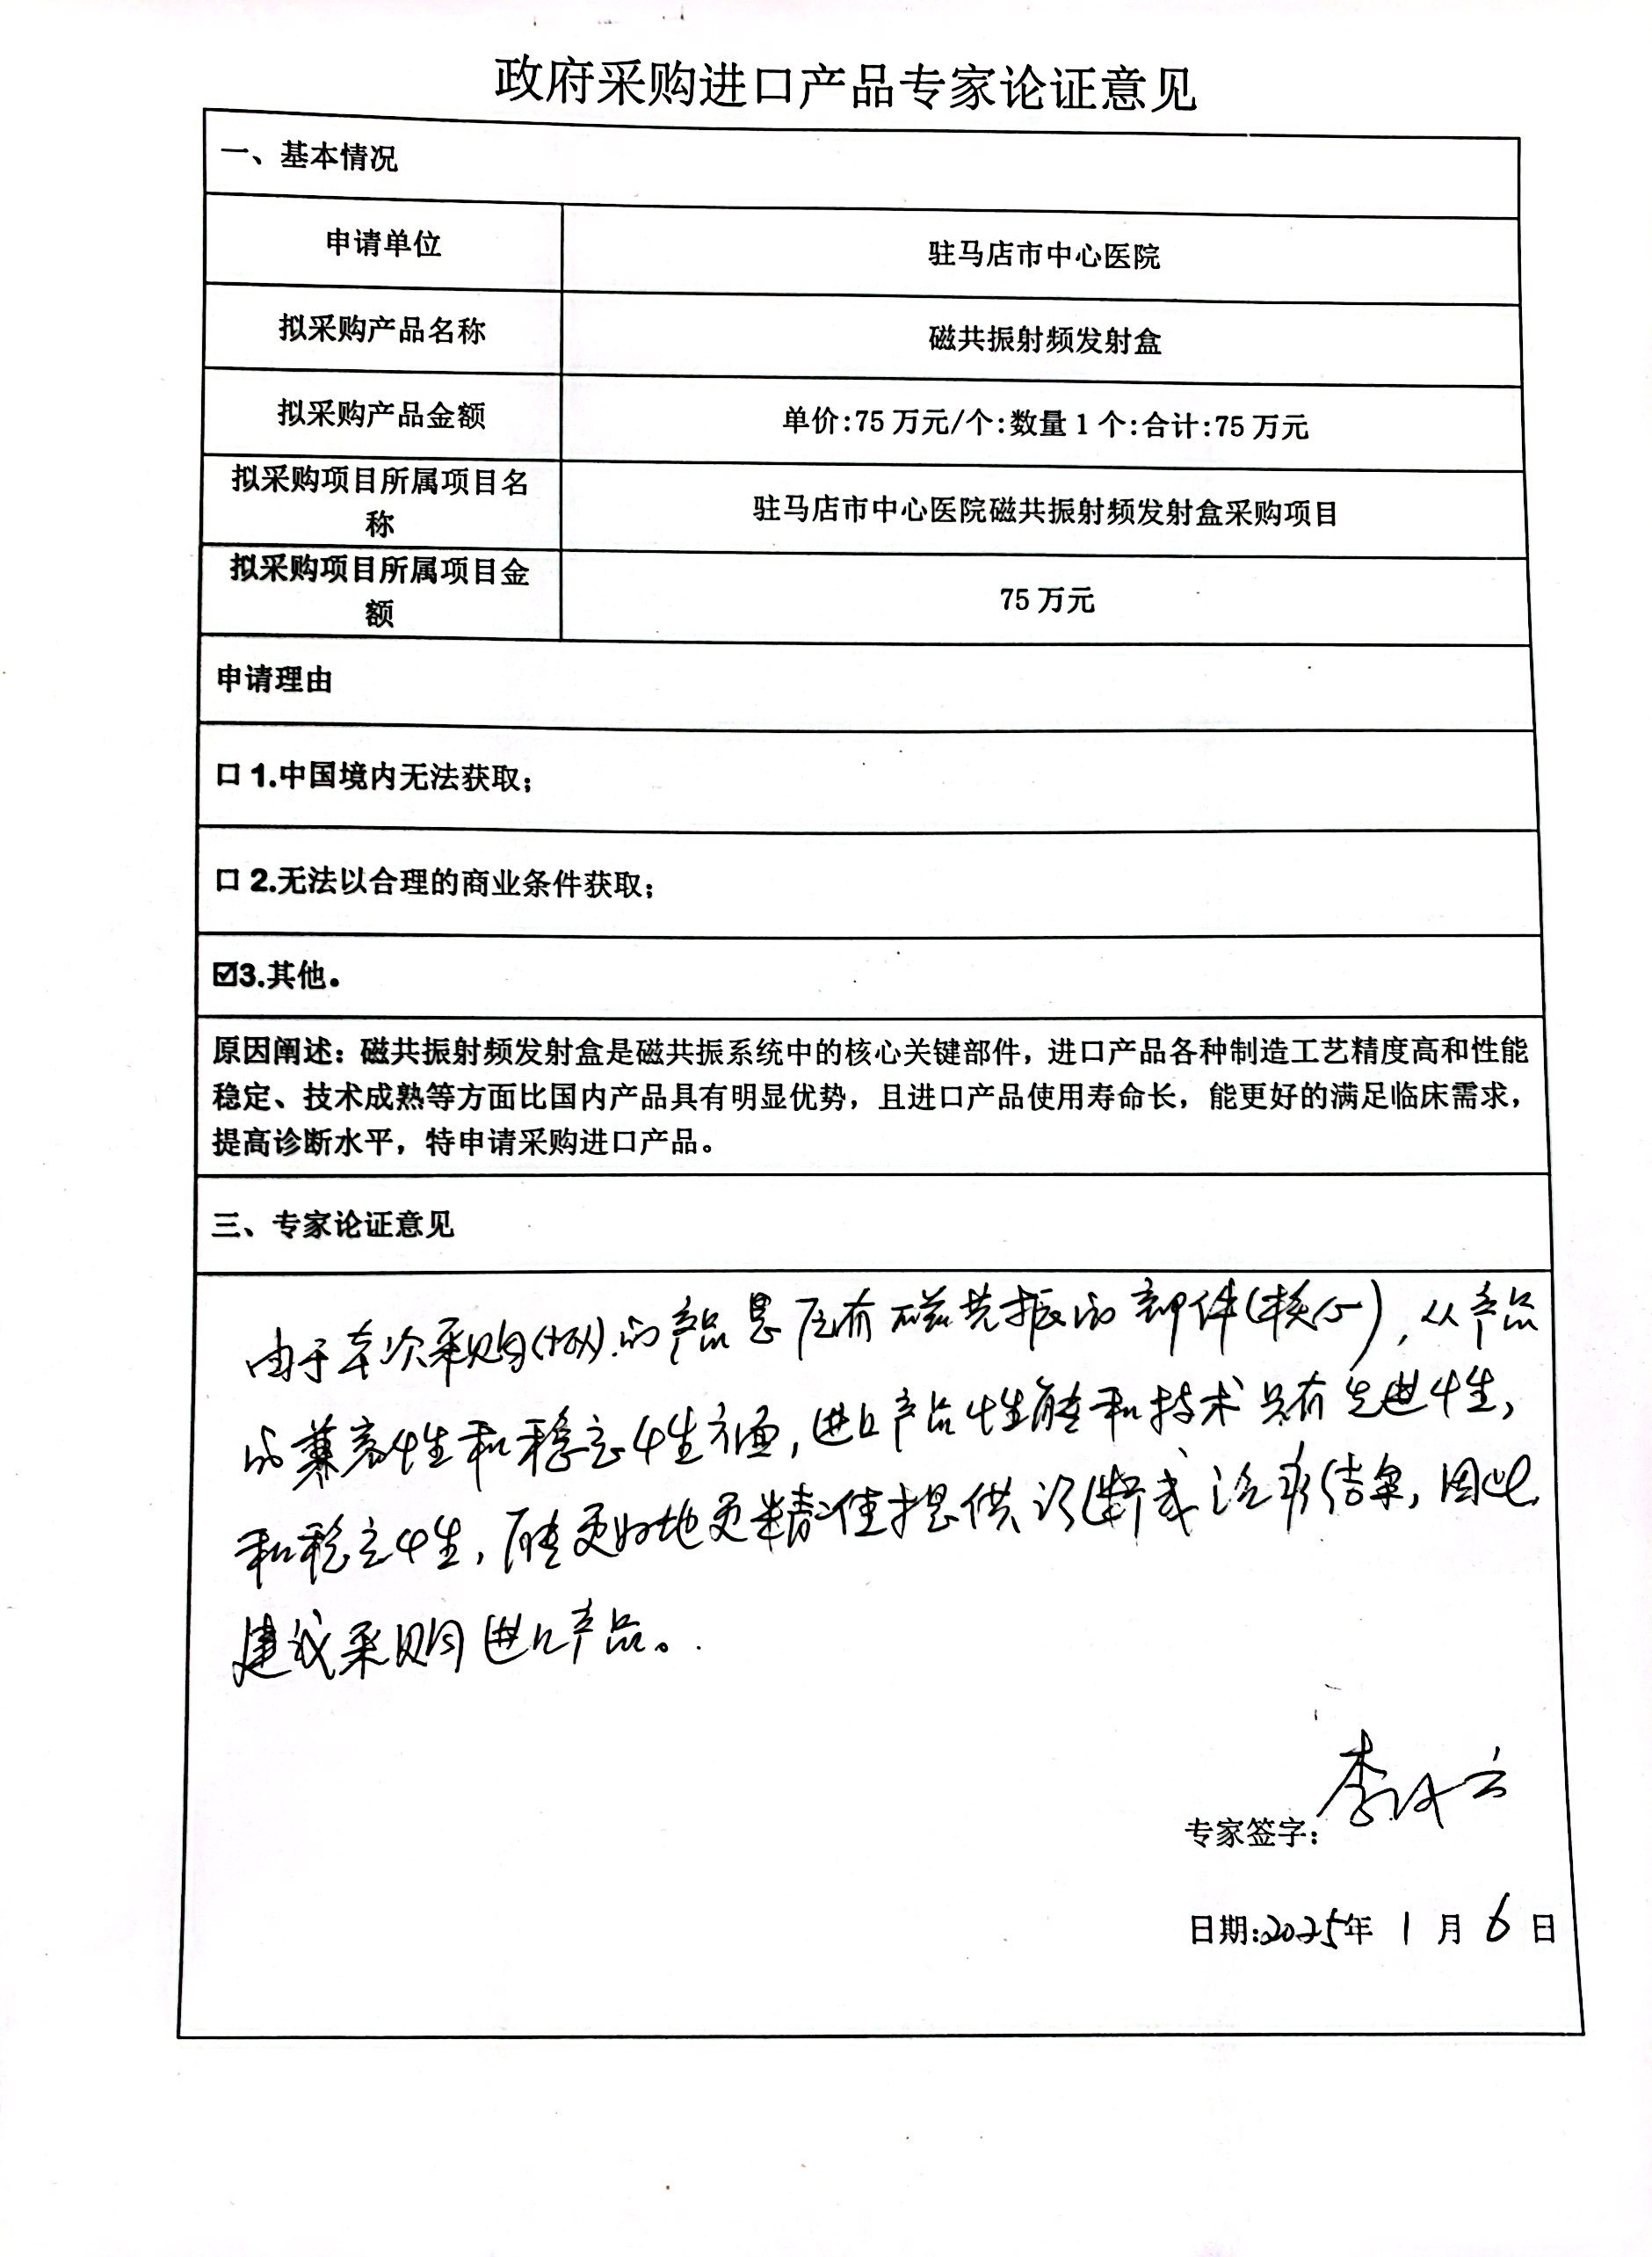 政府采购进口产品专家论证意见
一、基本情况
申请单位
驻马店市中心医院
拟采购产品名称
磁共振射频发射盒
拟采购产品金额
单价:75万元/个:数量1个:合计:75万元
拟采购项目所属项目名
称
驻马店市中心医院磁共振射频发射盒采购项目
拟采购项目所属项目金
额
75万元
申请理由
口 1.中国境内无法获取;
口 2.无法以合理的商业条件获取;
☑3.其他。
原因阐述：磁共振射频发射盒是磁共振系统中的核心关键部件，进口产品各种制造工艺精度高和性能
稳定、技术成熟等方面比国内产品具有明显优势，且进口产品使用寿命长，能更好的满足临床需求，
提高诊断水平，特申请采购进口产品。
三、专家论证意见
由于本次采购的产品是原有磁共振的部件(核心), 从产品
的兼容性和稳定性方面, 进口产品性能和技术具有先进性,
和稳定性, 能更好地更精准提供诊断或治疗结果, 因此
建议采购进口产品。
专家签字: 李
日期:2025年 1 月 6 日